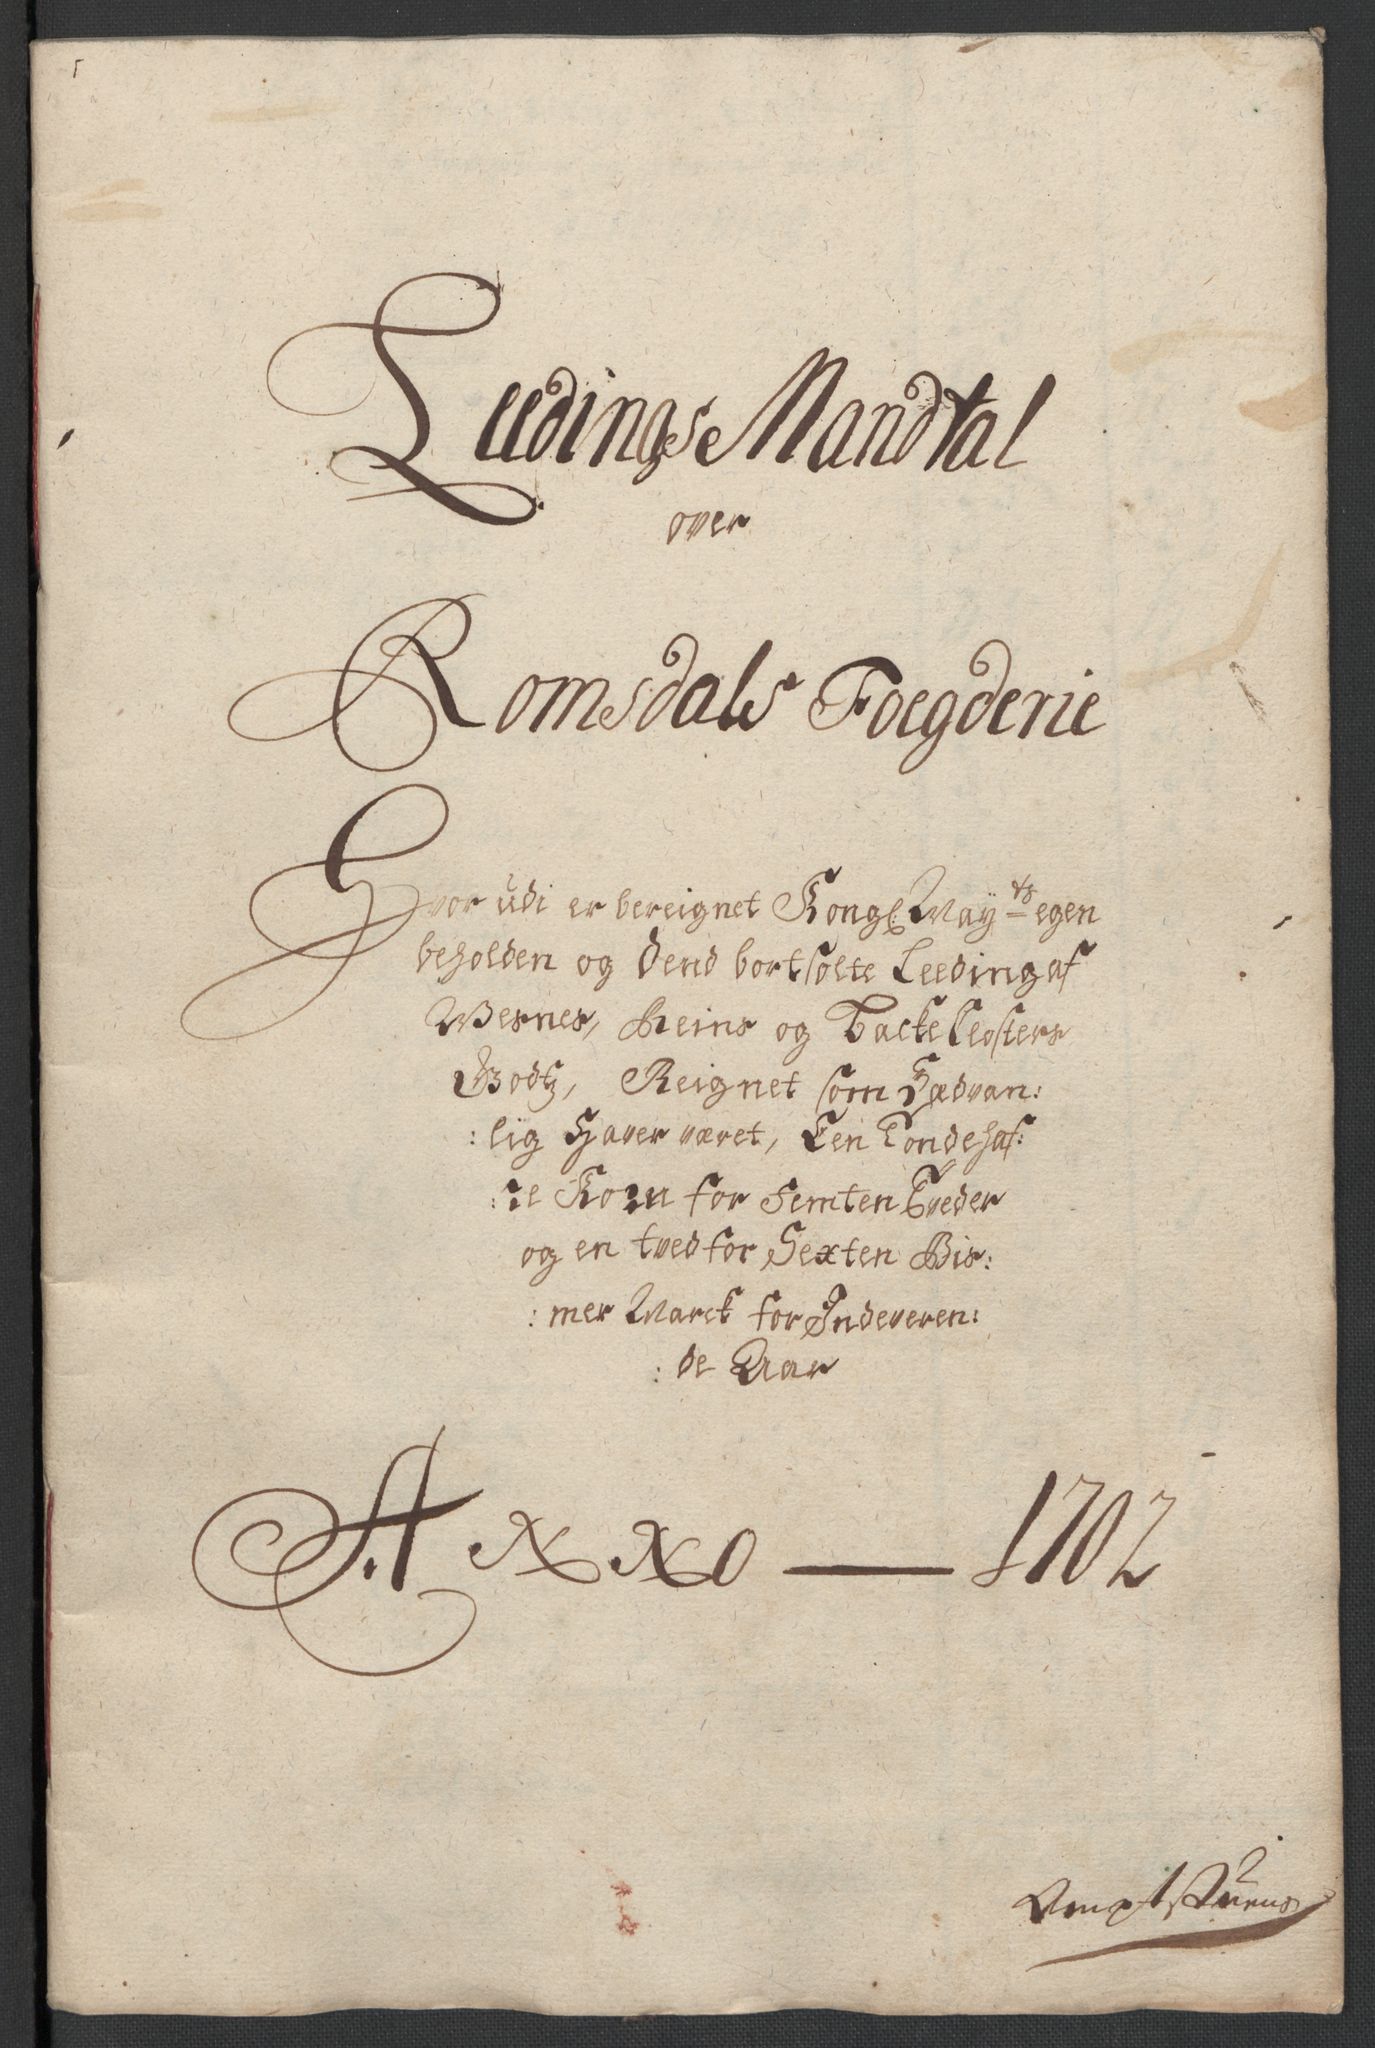 Leedings Mandtal
over
Romsdals Foegderie
Hvor udi er bereignet Kongl: Maÿ:ts egen
beholden og dend bortsolte Leeding af
Wernes, Reins og Backe Closters
Godtz, Reignet som Sædvan:
:lig Haver været, Een Tønde haf:
:re Korn for Femten Tveder
og en tved for Sexten Bis:
:mer Marck for Indeveren:
:de Aar
ANNO — 1702